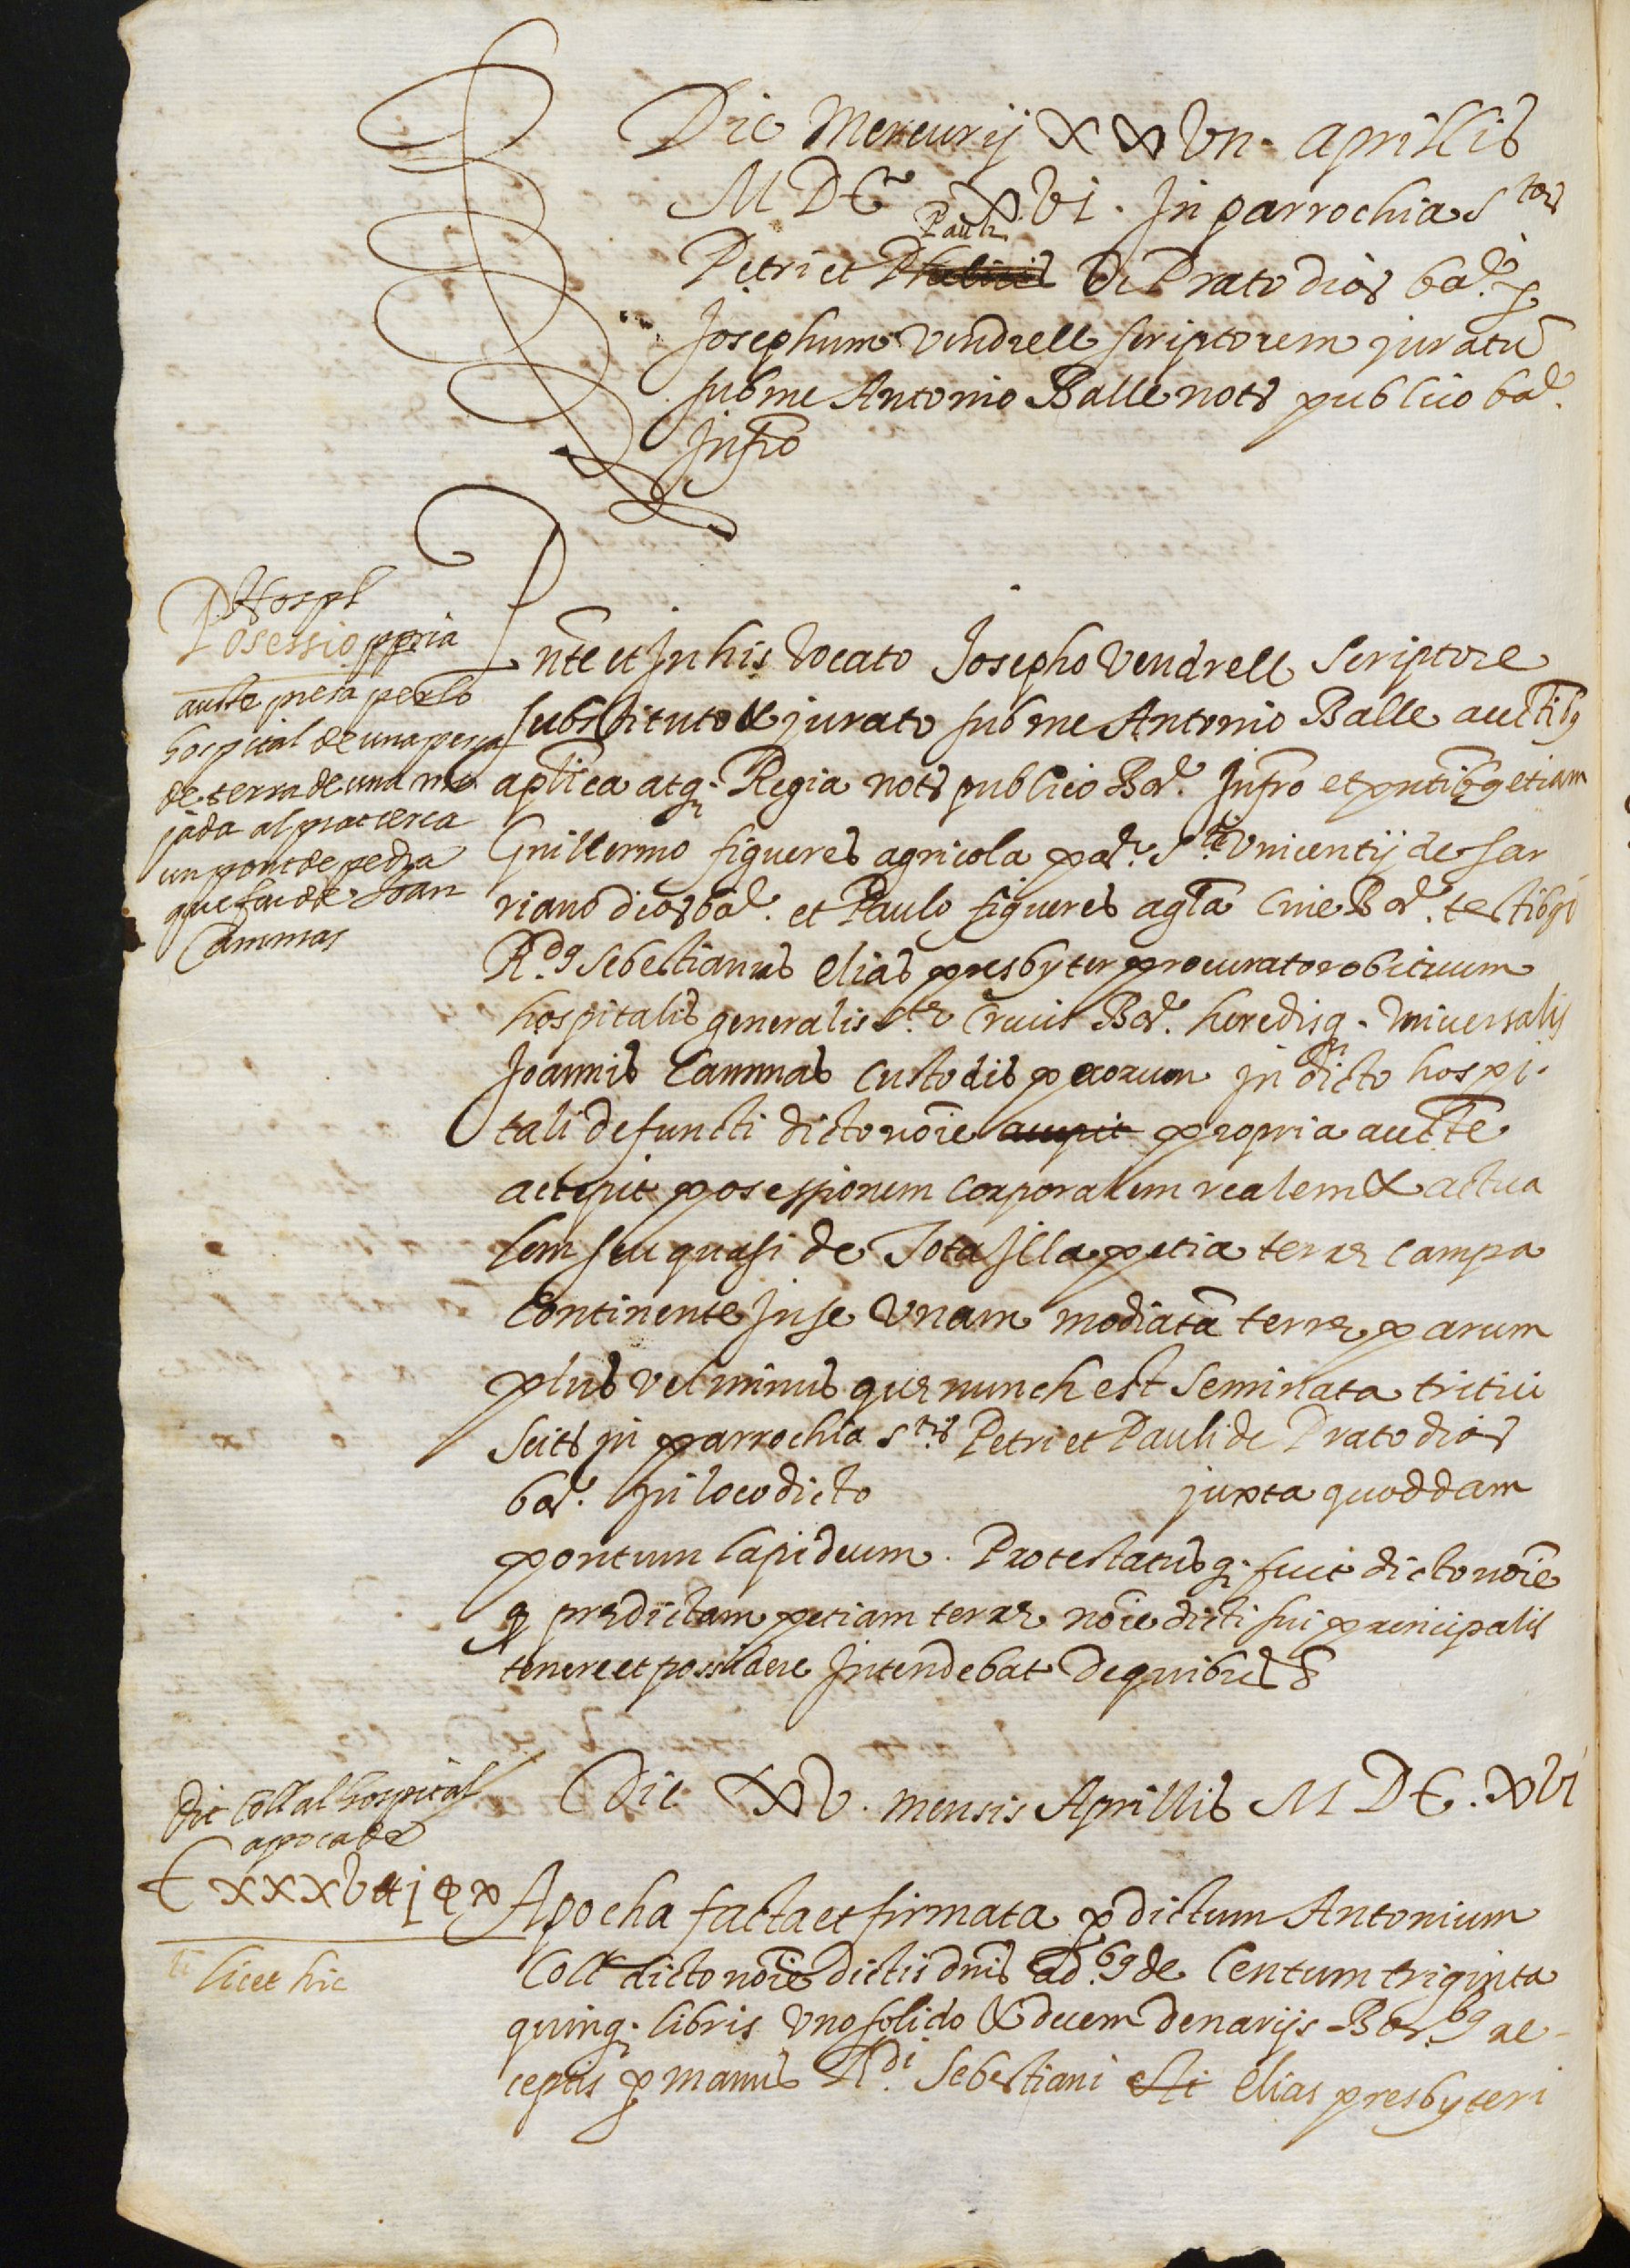 Die Mercurij XXVII. Aprillis
MDC XVI. In parrochia Stor
Pauli
Petri et de Prato dios bar. p
Josephum Vendrell scriptorem juratũ
sub me Antonio Batlle nots publico bar.
Infro
Hospl
Posessio ppria
aucte presa per lo
hospital de una pessa
de terra de una mu
jada al prat cerca
un pont de pedra
que fou de Joan
Cammas
Pnte et in his vocato Josepho Vendrell Scriptore
substituto & jurato sub me Antonio Batlle auctibq
aplica atq. Regia nots publico Bar. Infro et pntibq etiam
Guillermo figueres agricola par. Sti Vincentij de sar
riano dios bar. et Paulo figueres agla Cive Bar. testibq
Rdq Sebestianus Elias presbyter procurator obituum
hospitalis generalis Ste Crucis Bar. heredisq. Universalis
Joannis Cammas Custodis porcorum in dicto hospi-
tali defuncti dicto noie accepit propria aucte
accepit posessionem corporalem realem & actua
lem seu quasi de Tota illa petia terre campa
Continente in se Unam modiatã terre parum
plus vel minus que nunch est Seminata tritici
Scits in parrochia Stors Petri et Pauli de Prato dios
bar. In loco dicto juxta quoddam
pontum lapideum. Protestatusq. fuit dicto noie
q predictam petiam terre noie dicti sui principalis
tenere et possidere Intendebat De quibus &
Die XV. mensis Aprillis MDC. XVI
Dit Coll al hospital
apoca de
C xxxv lt j s x
Apocha facta et firmata p dictum Antonium
Coll dicto noie dictis dnis ad.bq de Centum triginta
quinq. libris Uno solido & decem denarijs Bar.bq ac-
ceptis p manus Rdi Sebestiani Elias presbyteri
licet hic